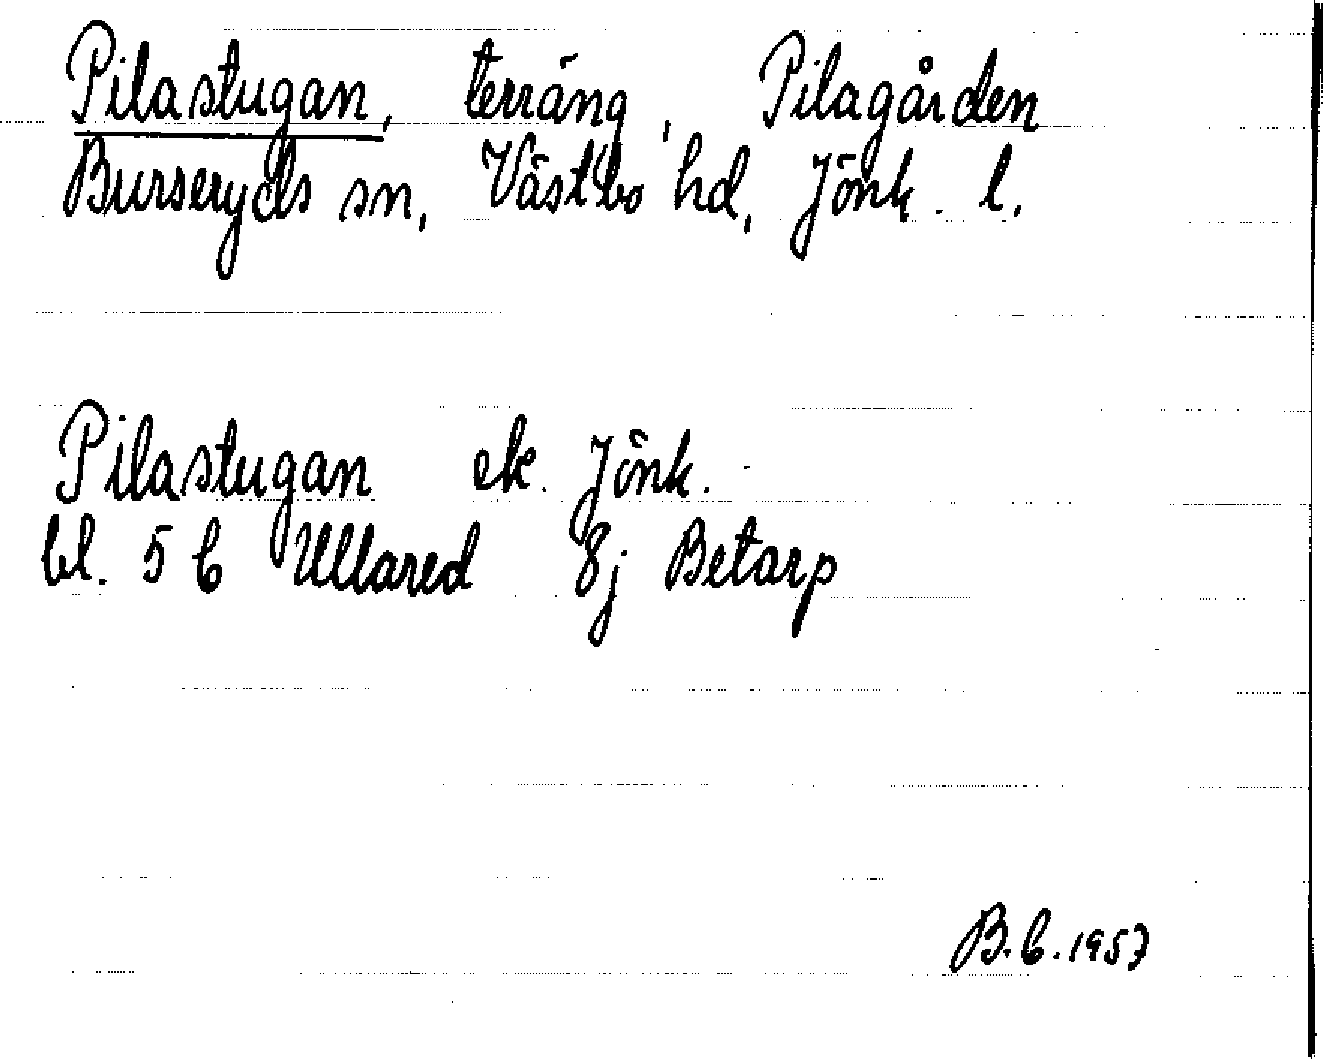 Pilastugan, terräng, Pilagården
Burseryds sn, Västbo hd, Jönk. l.
Pilastugan ek. Jönk.
bl. 5 C Ullared 8j Betarp
B.C. 1957